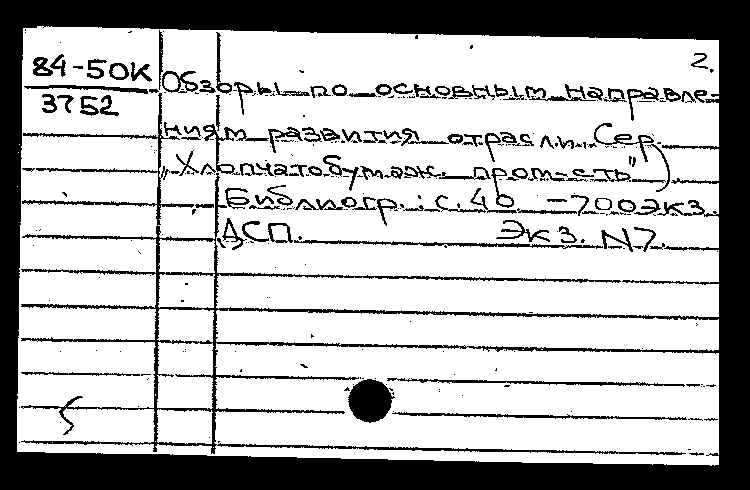 2.
84-50К
3752
Обзоры по основным направле-
ниям развития отрасли. Сер.
„Хлопчатобумаж. пром-сть")
Библиогр.: с. 40 –700экз.
ДСП. Экз. N7.